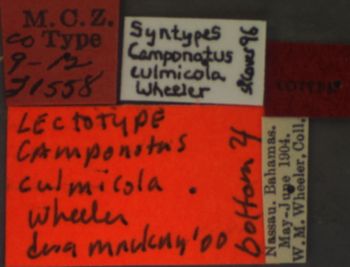 M.C.Z.
CoType
9-12
21558
Syntypes
Camponotus
culmicola
Wheeler
COTYPE
LECTOTYPE
CAmponotus
culmicola.
wheeler
desg mackay '00
bottom
Nassau. Bahamas.
May-June 1904.
W. M. Wheeler, Coll.